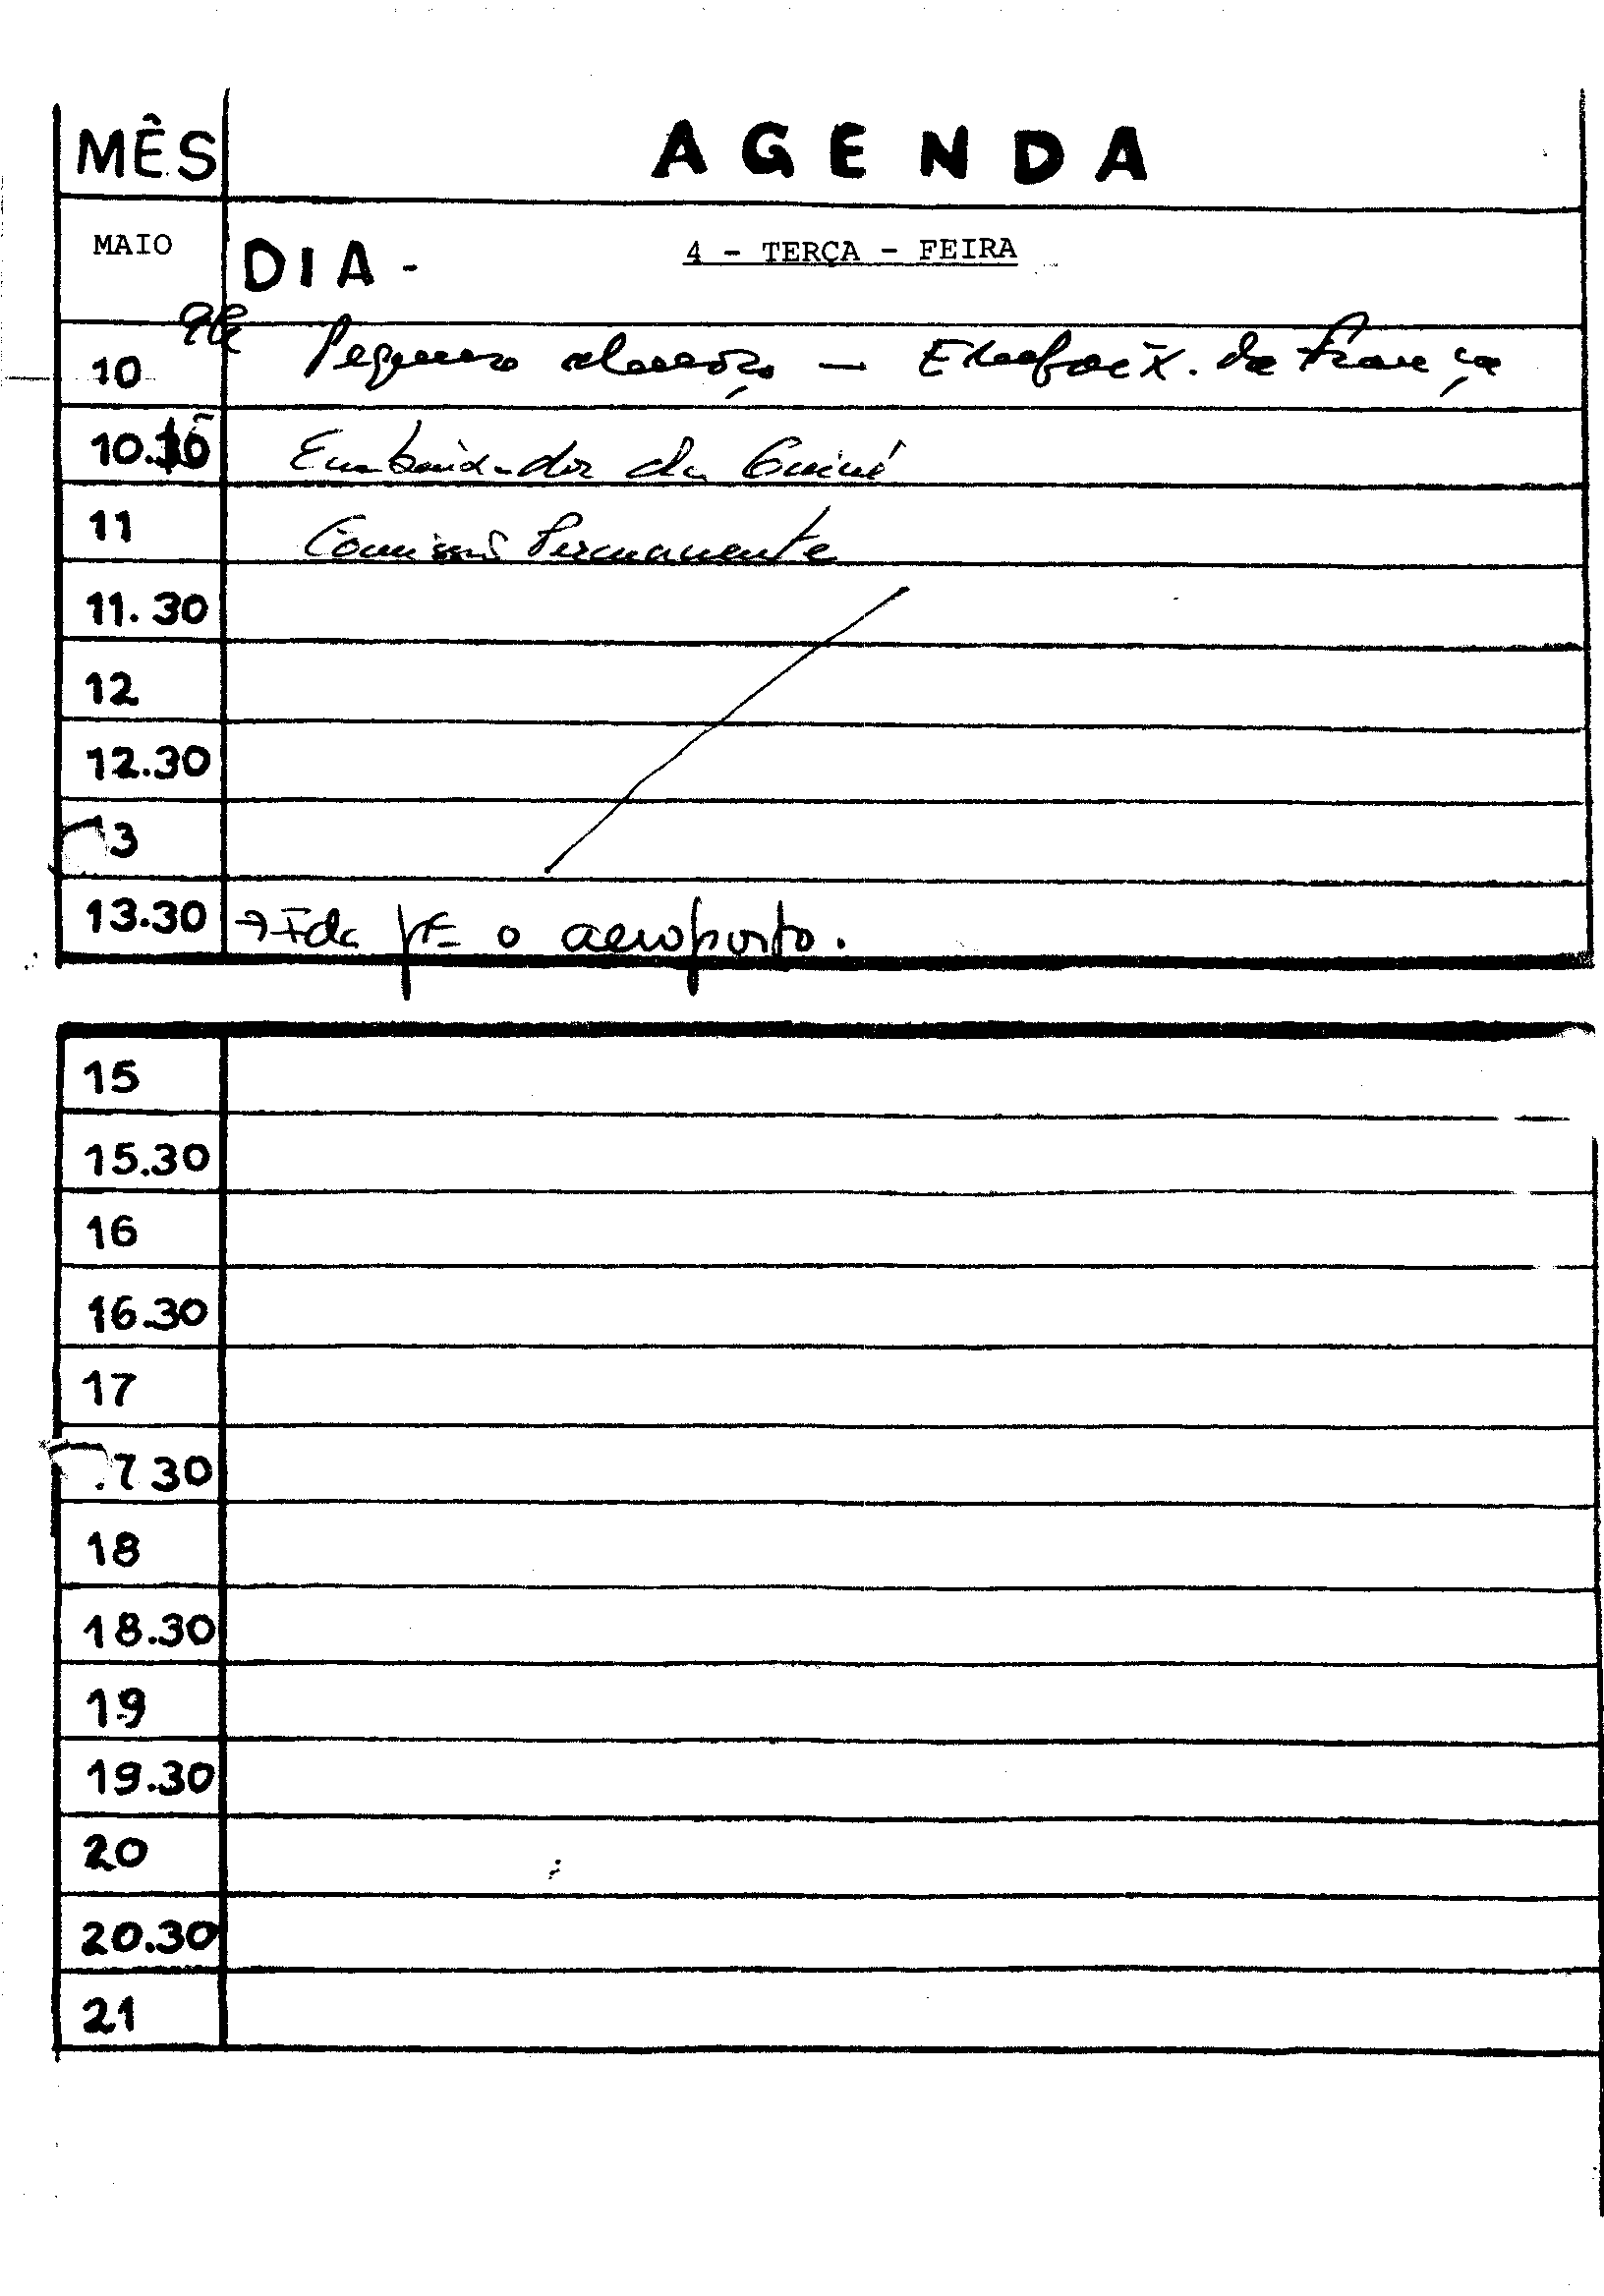 MÊS AGENDA
MAIO DIA - 4 - TERÇA - FEIRA
10 Pequeno almoço - Embaix. da França
10.15 Embaixador da Guiné
11 Comissão Permanente
11.30
12
12.30
13
13.30 → Ida p/ o aeroporto.
15
15.30
16
16.30
17
17 30
18
18.30
19
19.30
20
20.30
21